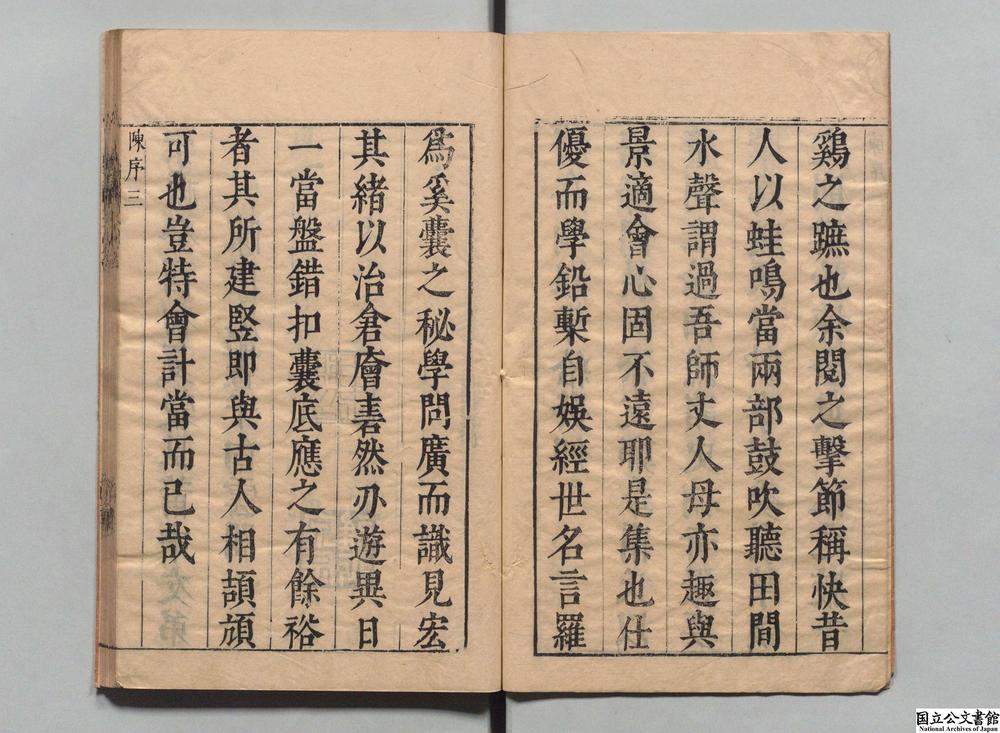 鷄之蹠也余閱之擊節稱快昔
人以蛙鳴當兩部鼓吹聽田間
水聲謂過吾師丈人毋亦趣與
景適會心固不遠耶是集也仕
優而學鉛槧自娛經世名言羅
爲奚囊之秘學問廣而識見宏
其緒以治倉廥砉然刃遊異日
一當盤錯扣囊底應之有餘裕
者其所建竪即與古人相頡頏
可也豈特會計當而已哉
陳序 三
国立公文書館
National Archives of Japan